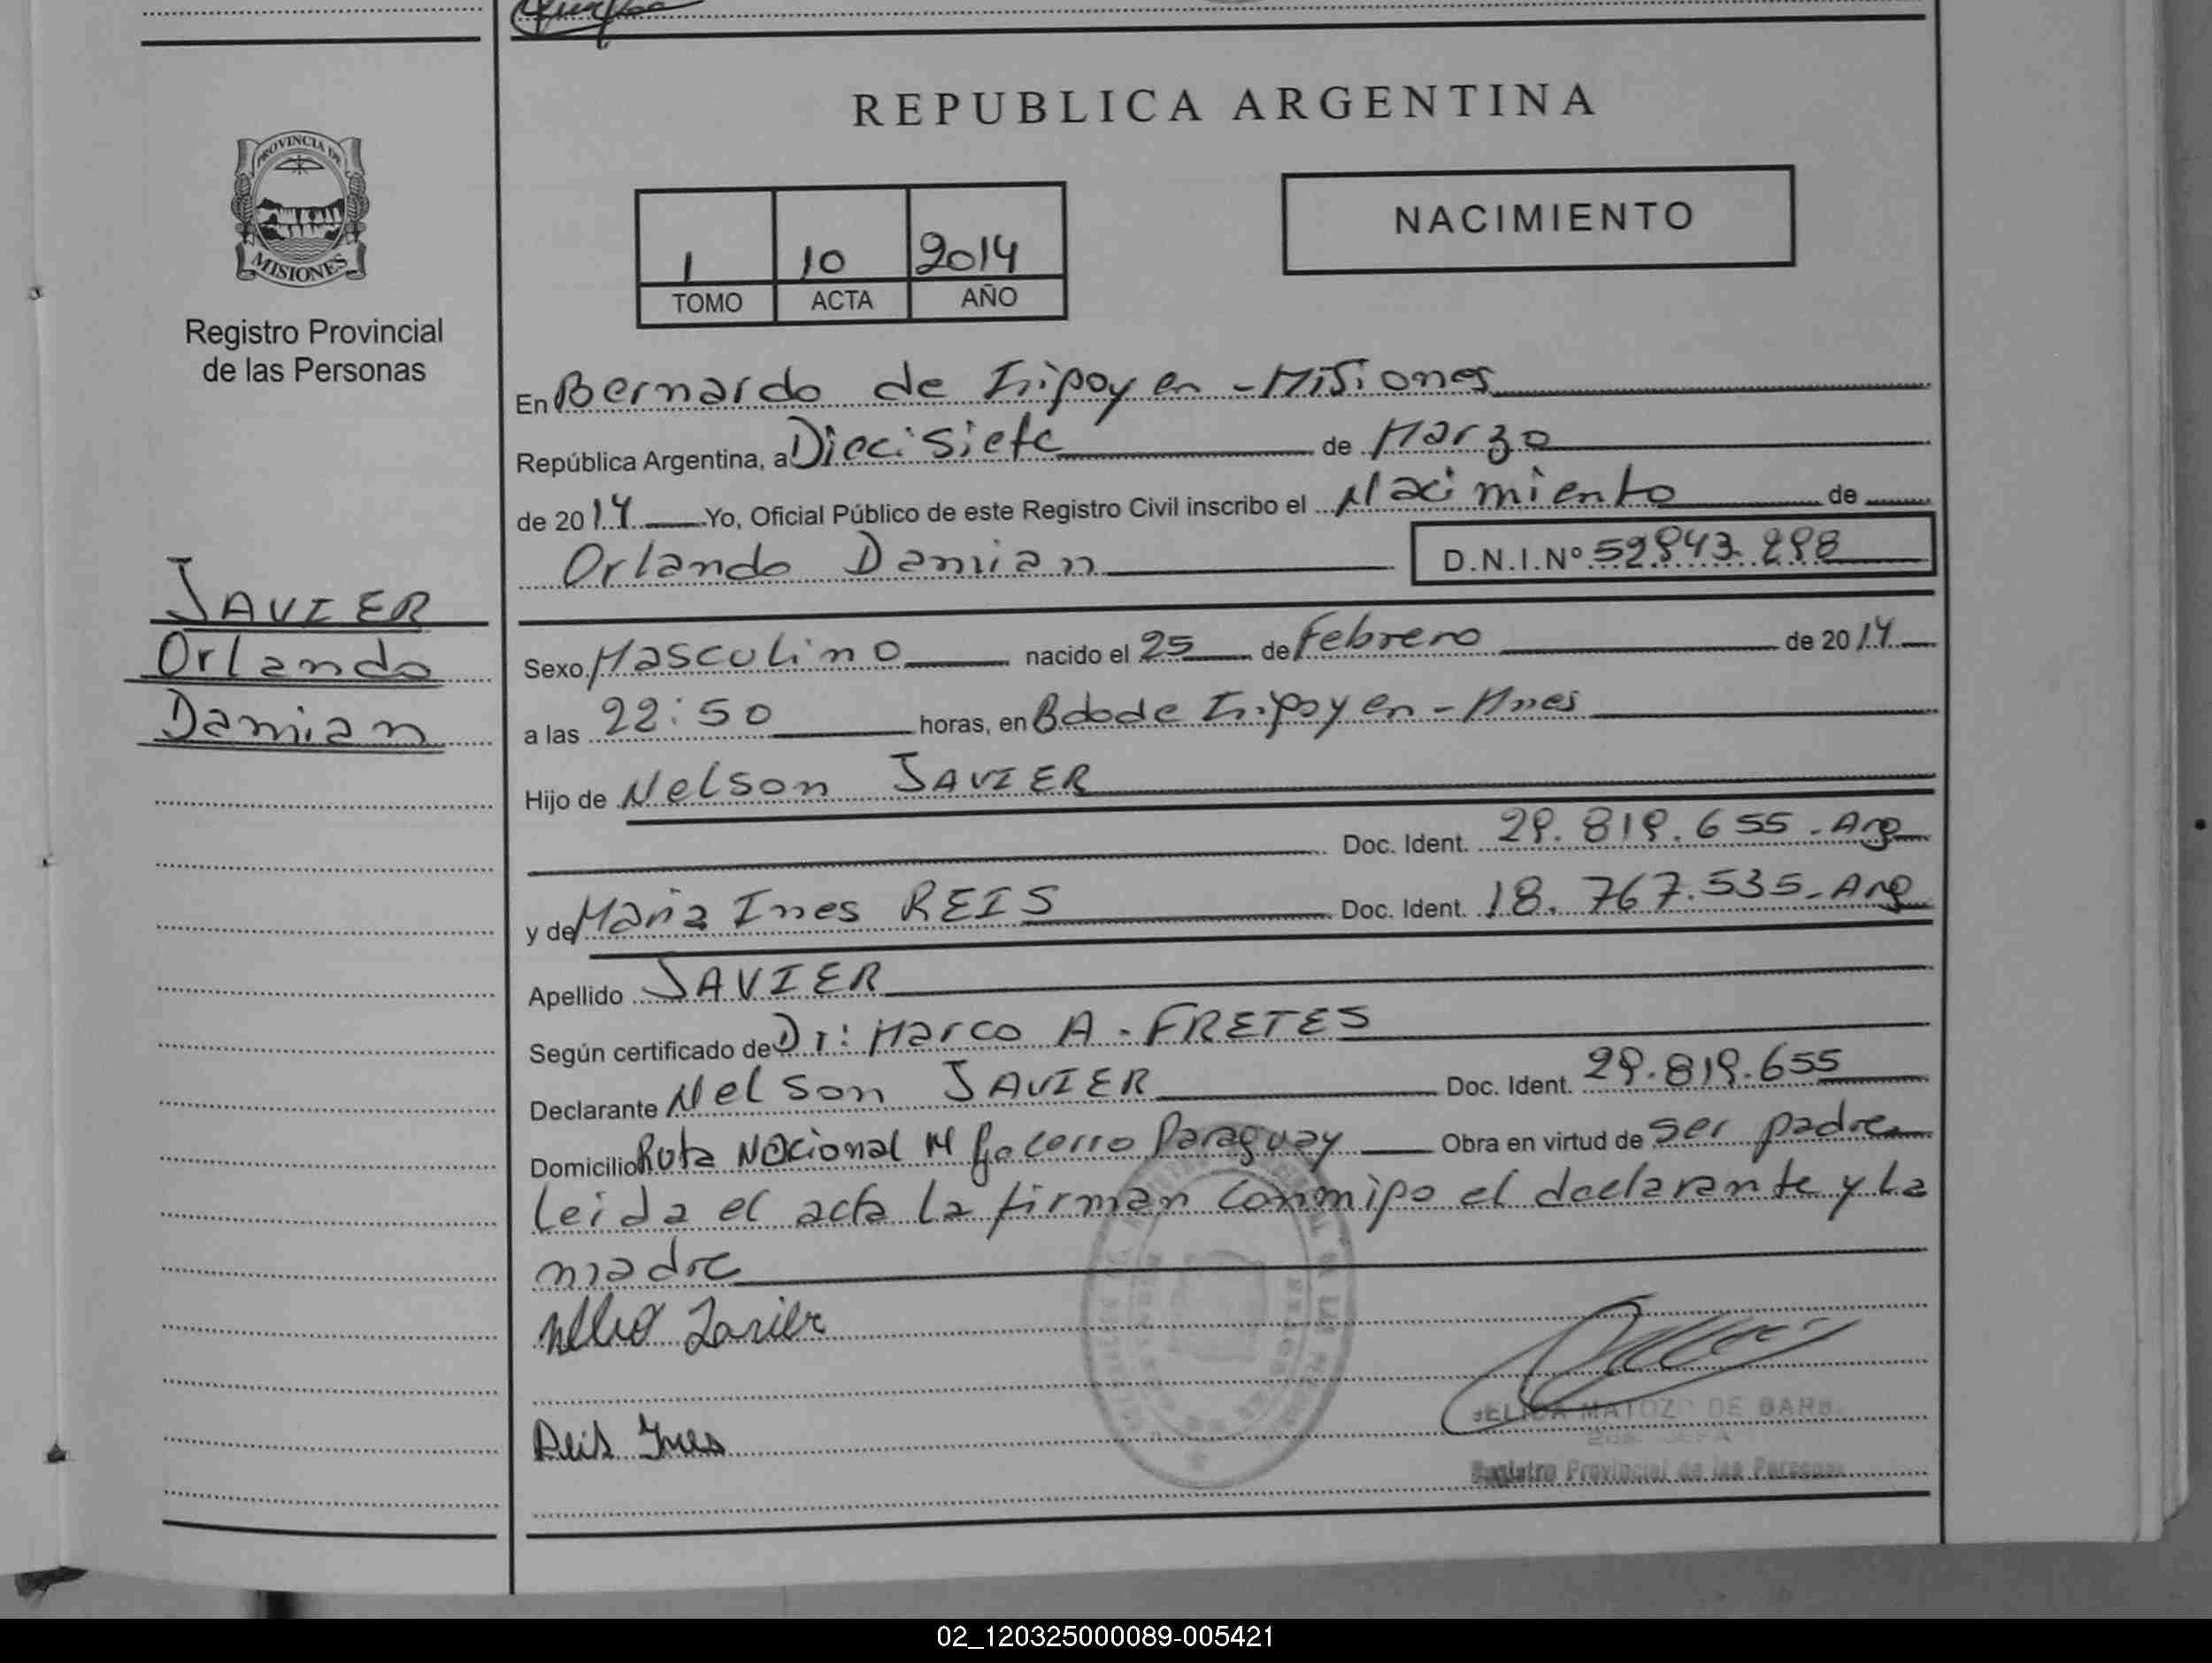 REPUBLICA ARGENTINA
PROVINCIA DE
MISIONES
Registro Provincial
de las Personas
1 10 2014
TOMO ACTA AÑO
NACIMIENTO
En Bernardo de Iripoyen - Misiones
República Argentina, a Diecisiete de Marzo
de 2014 Yo, Oficial Público de este Registro Civil inscribo el Nacimiento de
Orlando Damian D.N.I.Nº
JAVIER
Orlando
Damian
Sexo Masculino nacido el 25 de Febrero de 2014
a las 22:50 horas, en Bdo de Iripoyen - Mnes
Hijo de Nelson JAVIER
Doc. Ident. 29.819.655 - Arg
y de Maria Ines REIS Doc. Ident. 18.767.535 - Arg
Apellido JAVIER
Según certificado de Dr: Marco A. FRETES
Declarante Nelson JAVIER Doc. Ident. 29.819.655
Domicilio Ruta Nacional Paraguay Obra en virtud de ser padre
Leida el acta la firman conmipo el declarante y la
madre
Javier
Reis Ines
MATOZ DE BARB
Registro Provincial de las Personas
02_120325000089-005421